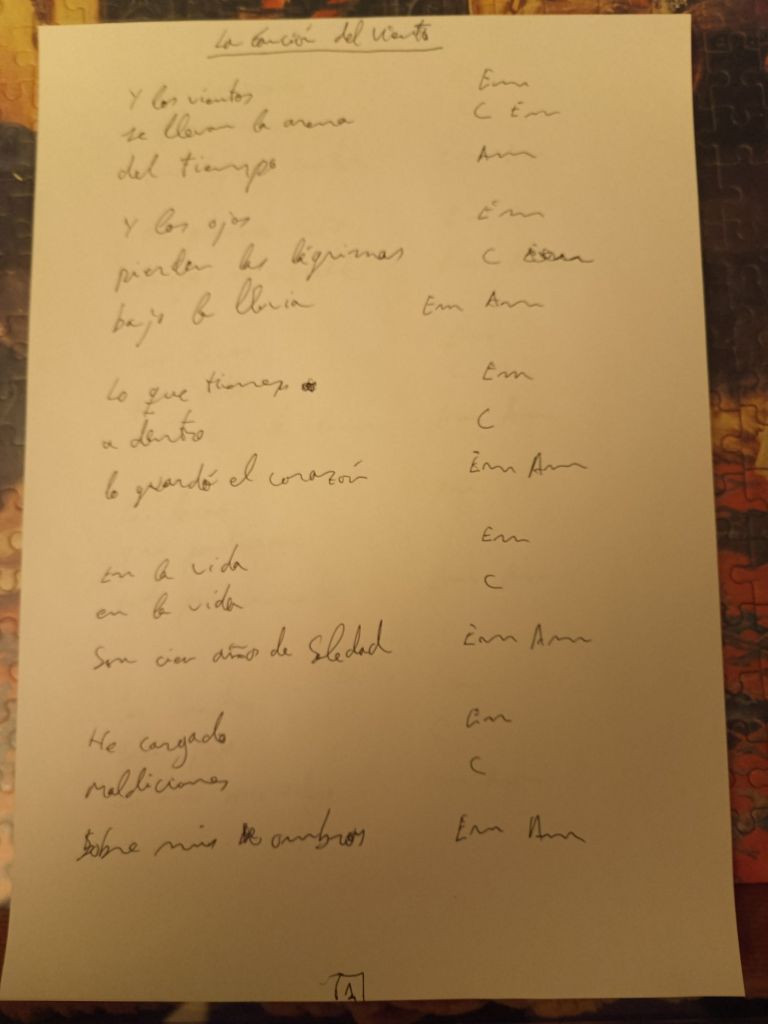 La Canción del Viento
Y los vientos Em
se llevan la arena C Em
del tiempo Am
Y los ojos Em
pierden las lágrimas C
bajo la lluvia Em Am
Lo que tienes Em
a dentro C
lo guardó el corazón Em Am
En la vida Em
en la vida C
Son cien años de Soledad Em Am
He cargado Em
maldiciones C
Sobre mis ombros Em Am
1